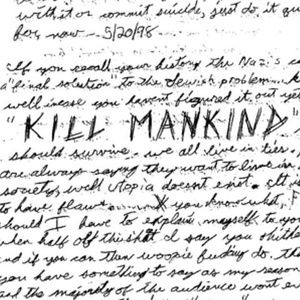 with it or commit suicide, just do it qu
for now - 5/20/98
If you recall your history the Nazis c
a "final solution" to the Jewish problem.
well incase you havent figured it out yet
"KILL MANKIND"
should survive. we all live in lies.
are always saying they want to live in
society, well Utopia doesnt exist. It
to have flaws. you know what, F
should I have to explain myself to yo
when half of this shit I say you shithe
and if you can then woopie fucking do. th
you have something to say as my reason
and the majority of the audience wont e